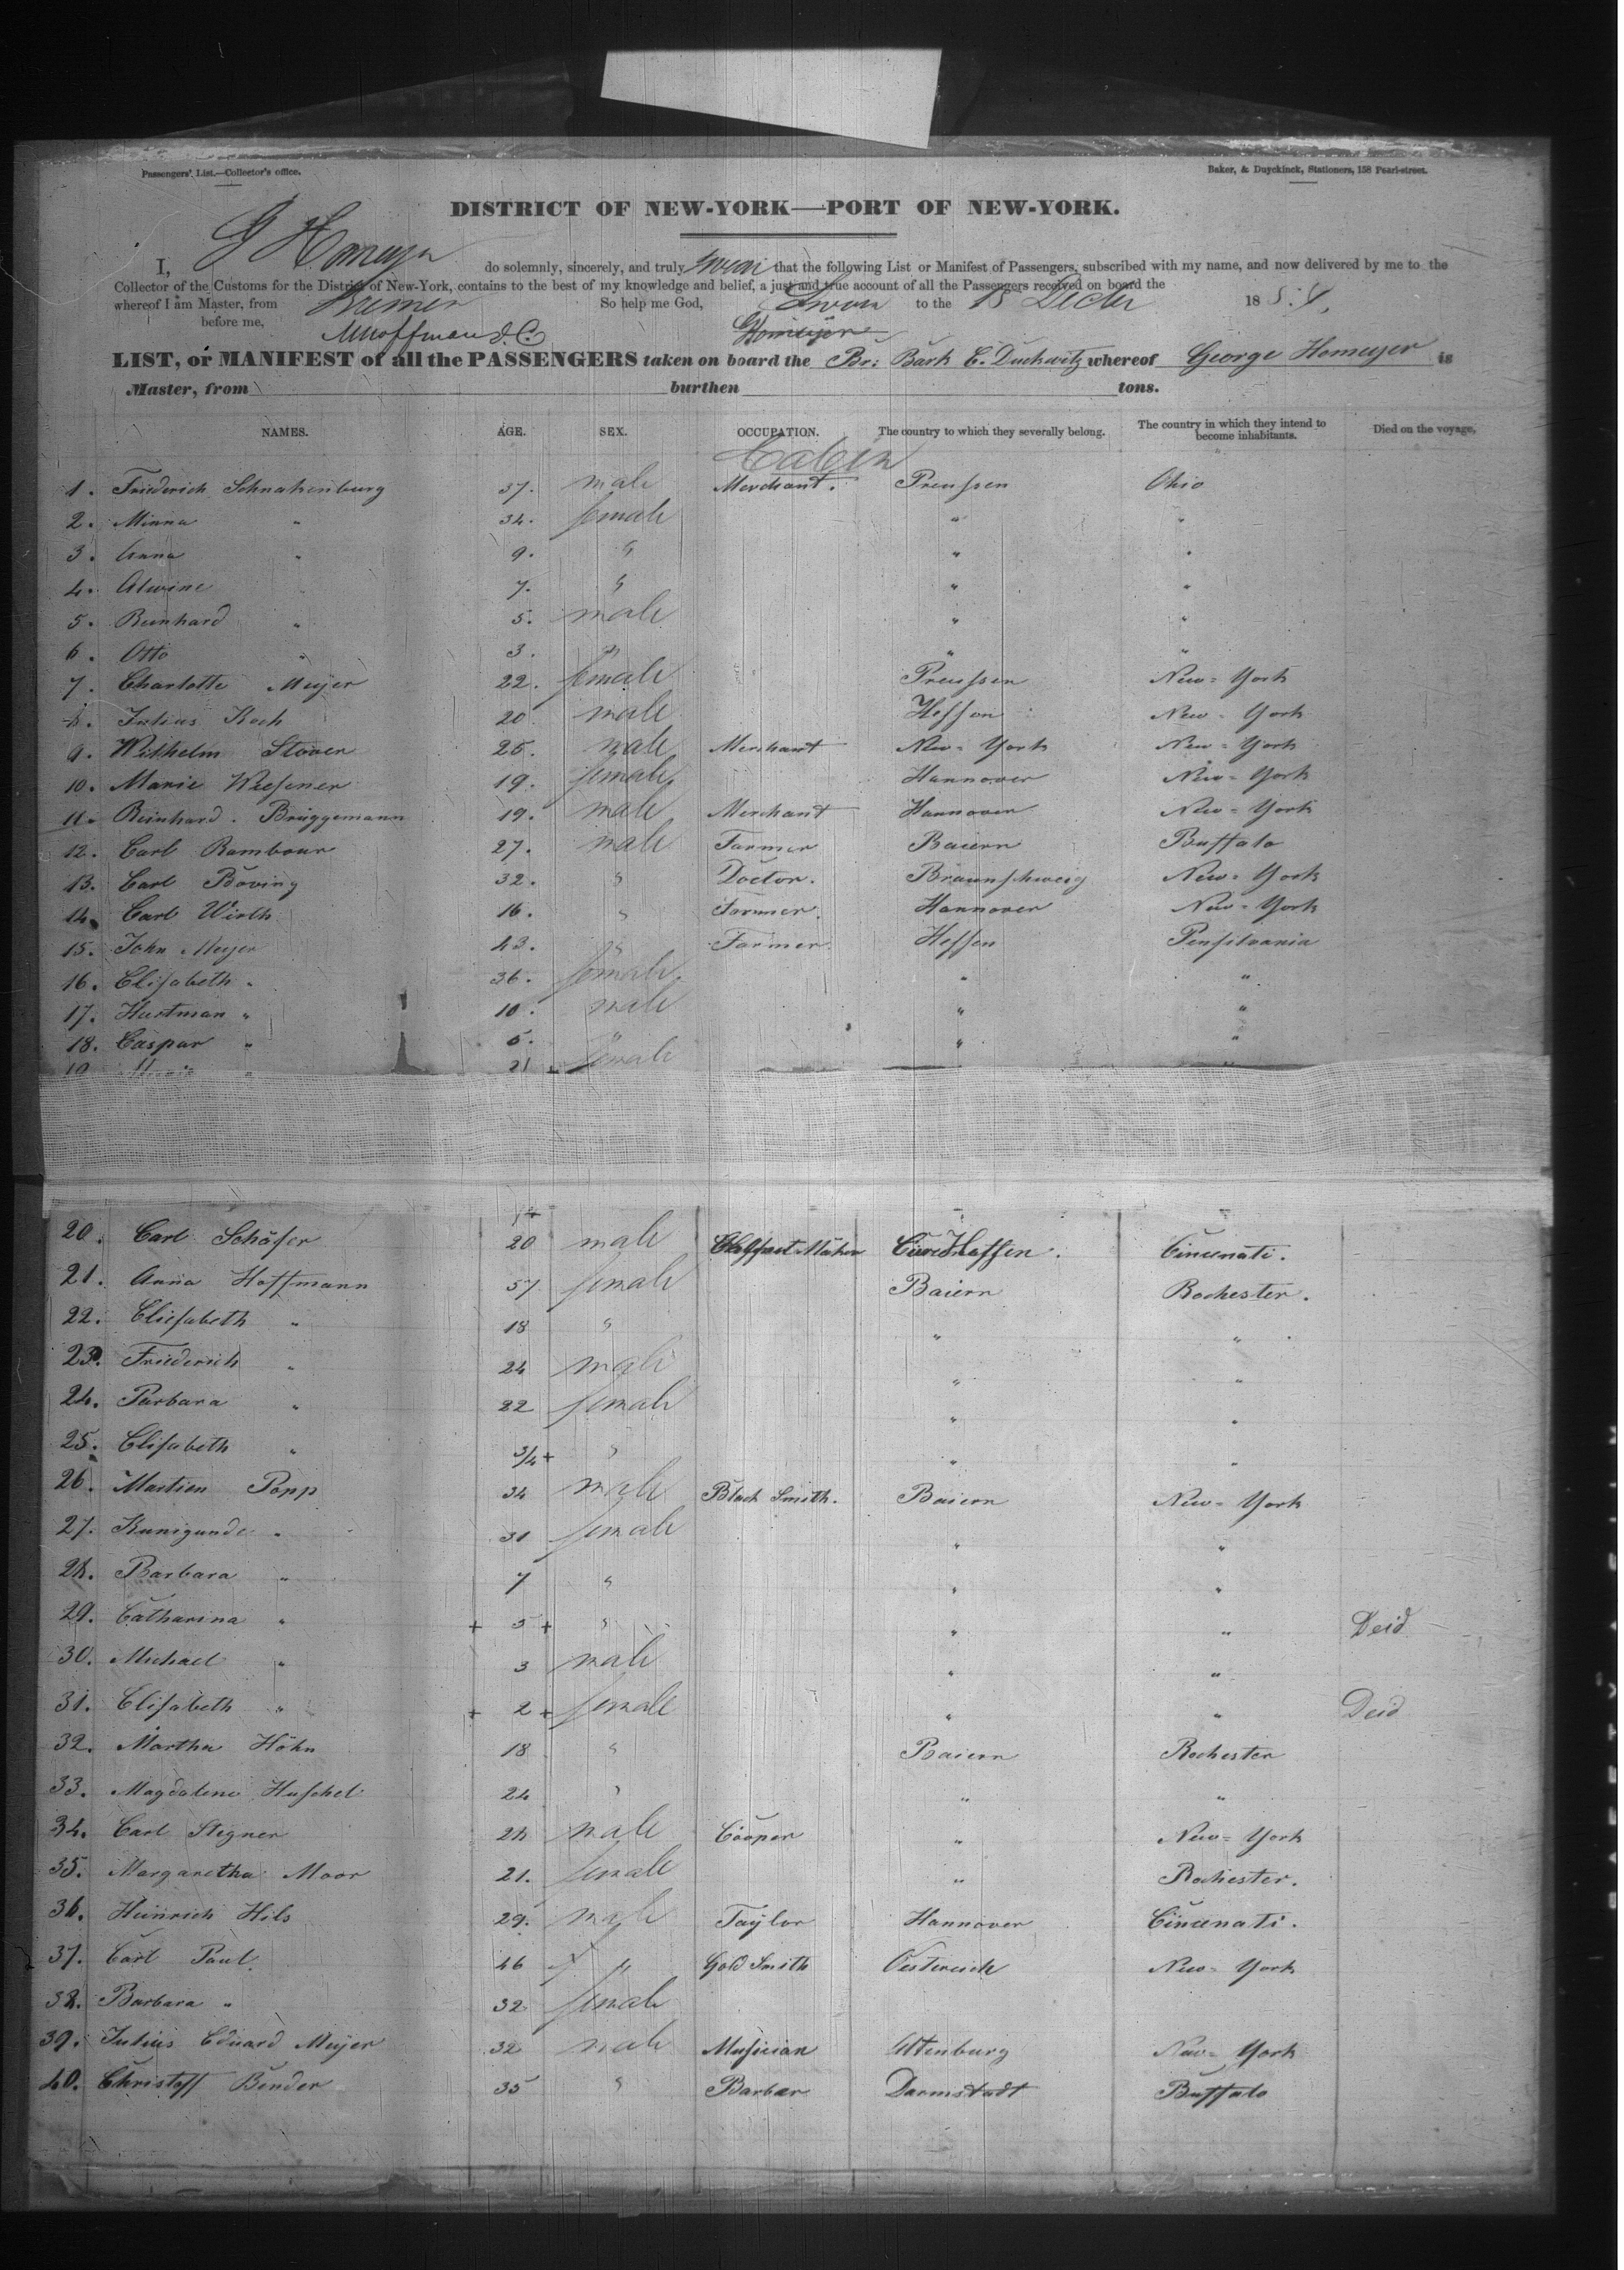 Passengers' List.—Collector's office.
Baker, & Duyckinck, Stationers, 158 Pearl-street.
DISTRICT OF NEW-YORK—PORT OF NEW-YORK.
I, G Homeyer do solemnly, sincerely, and truly swear that the following List or Manifest of Passengers, subscribed with my name, and now delivered by me to the
Collector of the Customs for the District of New-York, contains to the best of my knowledge and belief, a just and true account of all the Passengers received on board the
whereof I am Master, from Bremen So help me God, Sworn to the 18 Decbr 185
before me, Homeyer
LIST, or MANIFEST of all the PASSENGERS taken on board the Br: Bark C. Duckwitz whereof George Homeyer is
Master, from burthen tons.
NAMES. AGE. SEX. OCCUPATION. The country to which they severally belong. The country in which they intend to become inhabitants. Died on the voyage.
Cabin
1. Friederich Schnakenburg 37. male Merchant. Preussen Ohio
2. Minna " 34. female " "
3. Anna " 9. " " "
4. Alwine 7. " " "
5. Reinhard " 5. male " "
6. Otto " 3. " " "
7. Charlotte Meyer 22. female Preussen New-York
8. Julius Koch 20 male Hessen New-York
9. Wilhelm Stöver 25. male Merchant New-York New-York
10. Marie Wiessner 19. female Hannover New-York
11. Reinhard. Brüggemann 19. male Merchant Hannover New-York
12. Carl Rambour 27. male Farmer Baiern Buffalo
13. Carl Böving 32. " Doctor. Braunschweig New-York
14. Carl Wirth 16. " Farmer. Hannover New-York
15. John Meyer 43. " Farmer. Hessen Pensilvania
16. Elisabeth " 36. female. " "
17. Hartman " 10. male " "
18. Caspar " 5. " " "
19 " female "
20. Carl Schäfer 20 male Hessen. Cincenati.
21. Anna Hoffmann 57 female Baiern Rochester.
22. Eliesabeth " 18 " " "
23. Friederich " 24 male " "
24. Barbara " 22 female " "
25. Elisabeth " 3/4 + " " "
26. Martien Popp 34 male Black Smith. Baiern New-York
27. Kunigunde " 31 female " "
28. Barbara " 7 " " "
29. Catharina " + 5 + " " " Deid
30. Michael " 3 male " "
31. Elisabeth " + 2 + female " " Deid
32. Martha Höhn 18 " Baiern Rochester
33. Magdalene Huschel 24 " " "
34. Carl Stegner 28 male Cooper " New-York
35. Margaretha Moor 21. female " Rochester.
36. Heinrich Hils 29. male Taylor Hannover Cincenati.
37. Carl Paul. 46 " Gold Smith Oestereich New-York
38. Barbara " 32 female
39. Julius Eduard Meyer 32 male Musician Altenburg New-York
40. Christoff Bender 35 " Barber Darmstadt Buffalo